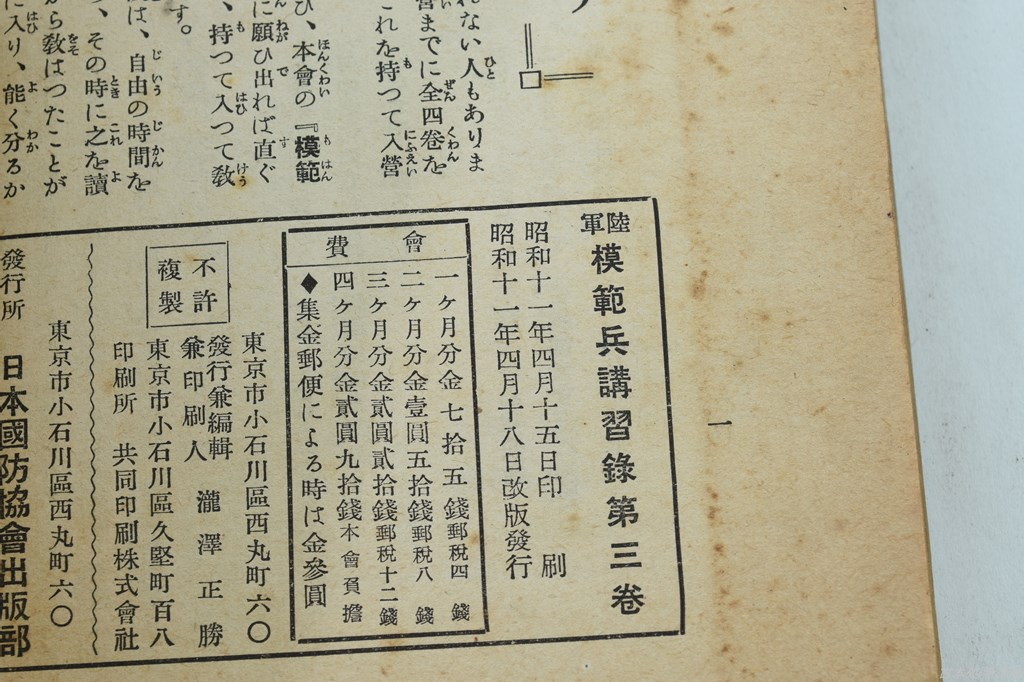 れない人もありま
營までに全四卷を
これを持つて入營
ひ、本會の『模範
に願ひ出れば直ぐ
、持つて入つて敎
す。
は、自由の時間を
、その時に之を讀
から敎はつたことが
に入り、能く分るか
一
陸軍 模範兵講習錄第三卷
昭和十一年四月十五日印刷
昭和十一年四月十八日改版發行
會費
一ヶ月分金七拾五錢郵稅四錢
二ヶ月分金壹圓五拾錢郵稅八錢
三ヶ月分金貳圓貳拾錢郵稅十二錢
四ヶ月分金貳圓九拾錢本會負擔
◆集金郵便による時は金參圓
不許複製
東京市小石川區西丸町六〇
發行兼編輯兼印刷人 瀧澤正勝
東京市小石川區久堅町百八
印刷所 共同印刷株式會社
東京市小石川區西丸町六〇
發行所 日本國防協會出版部